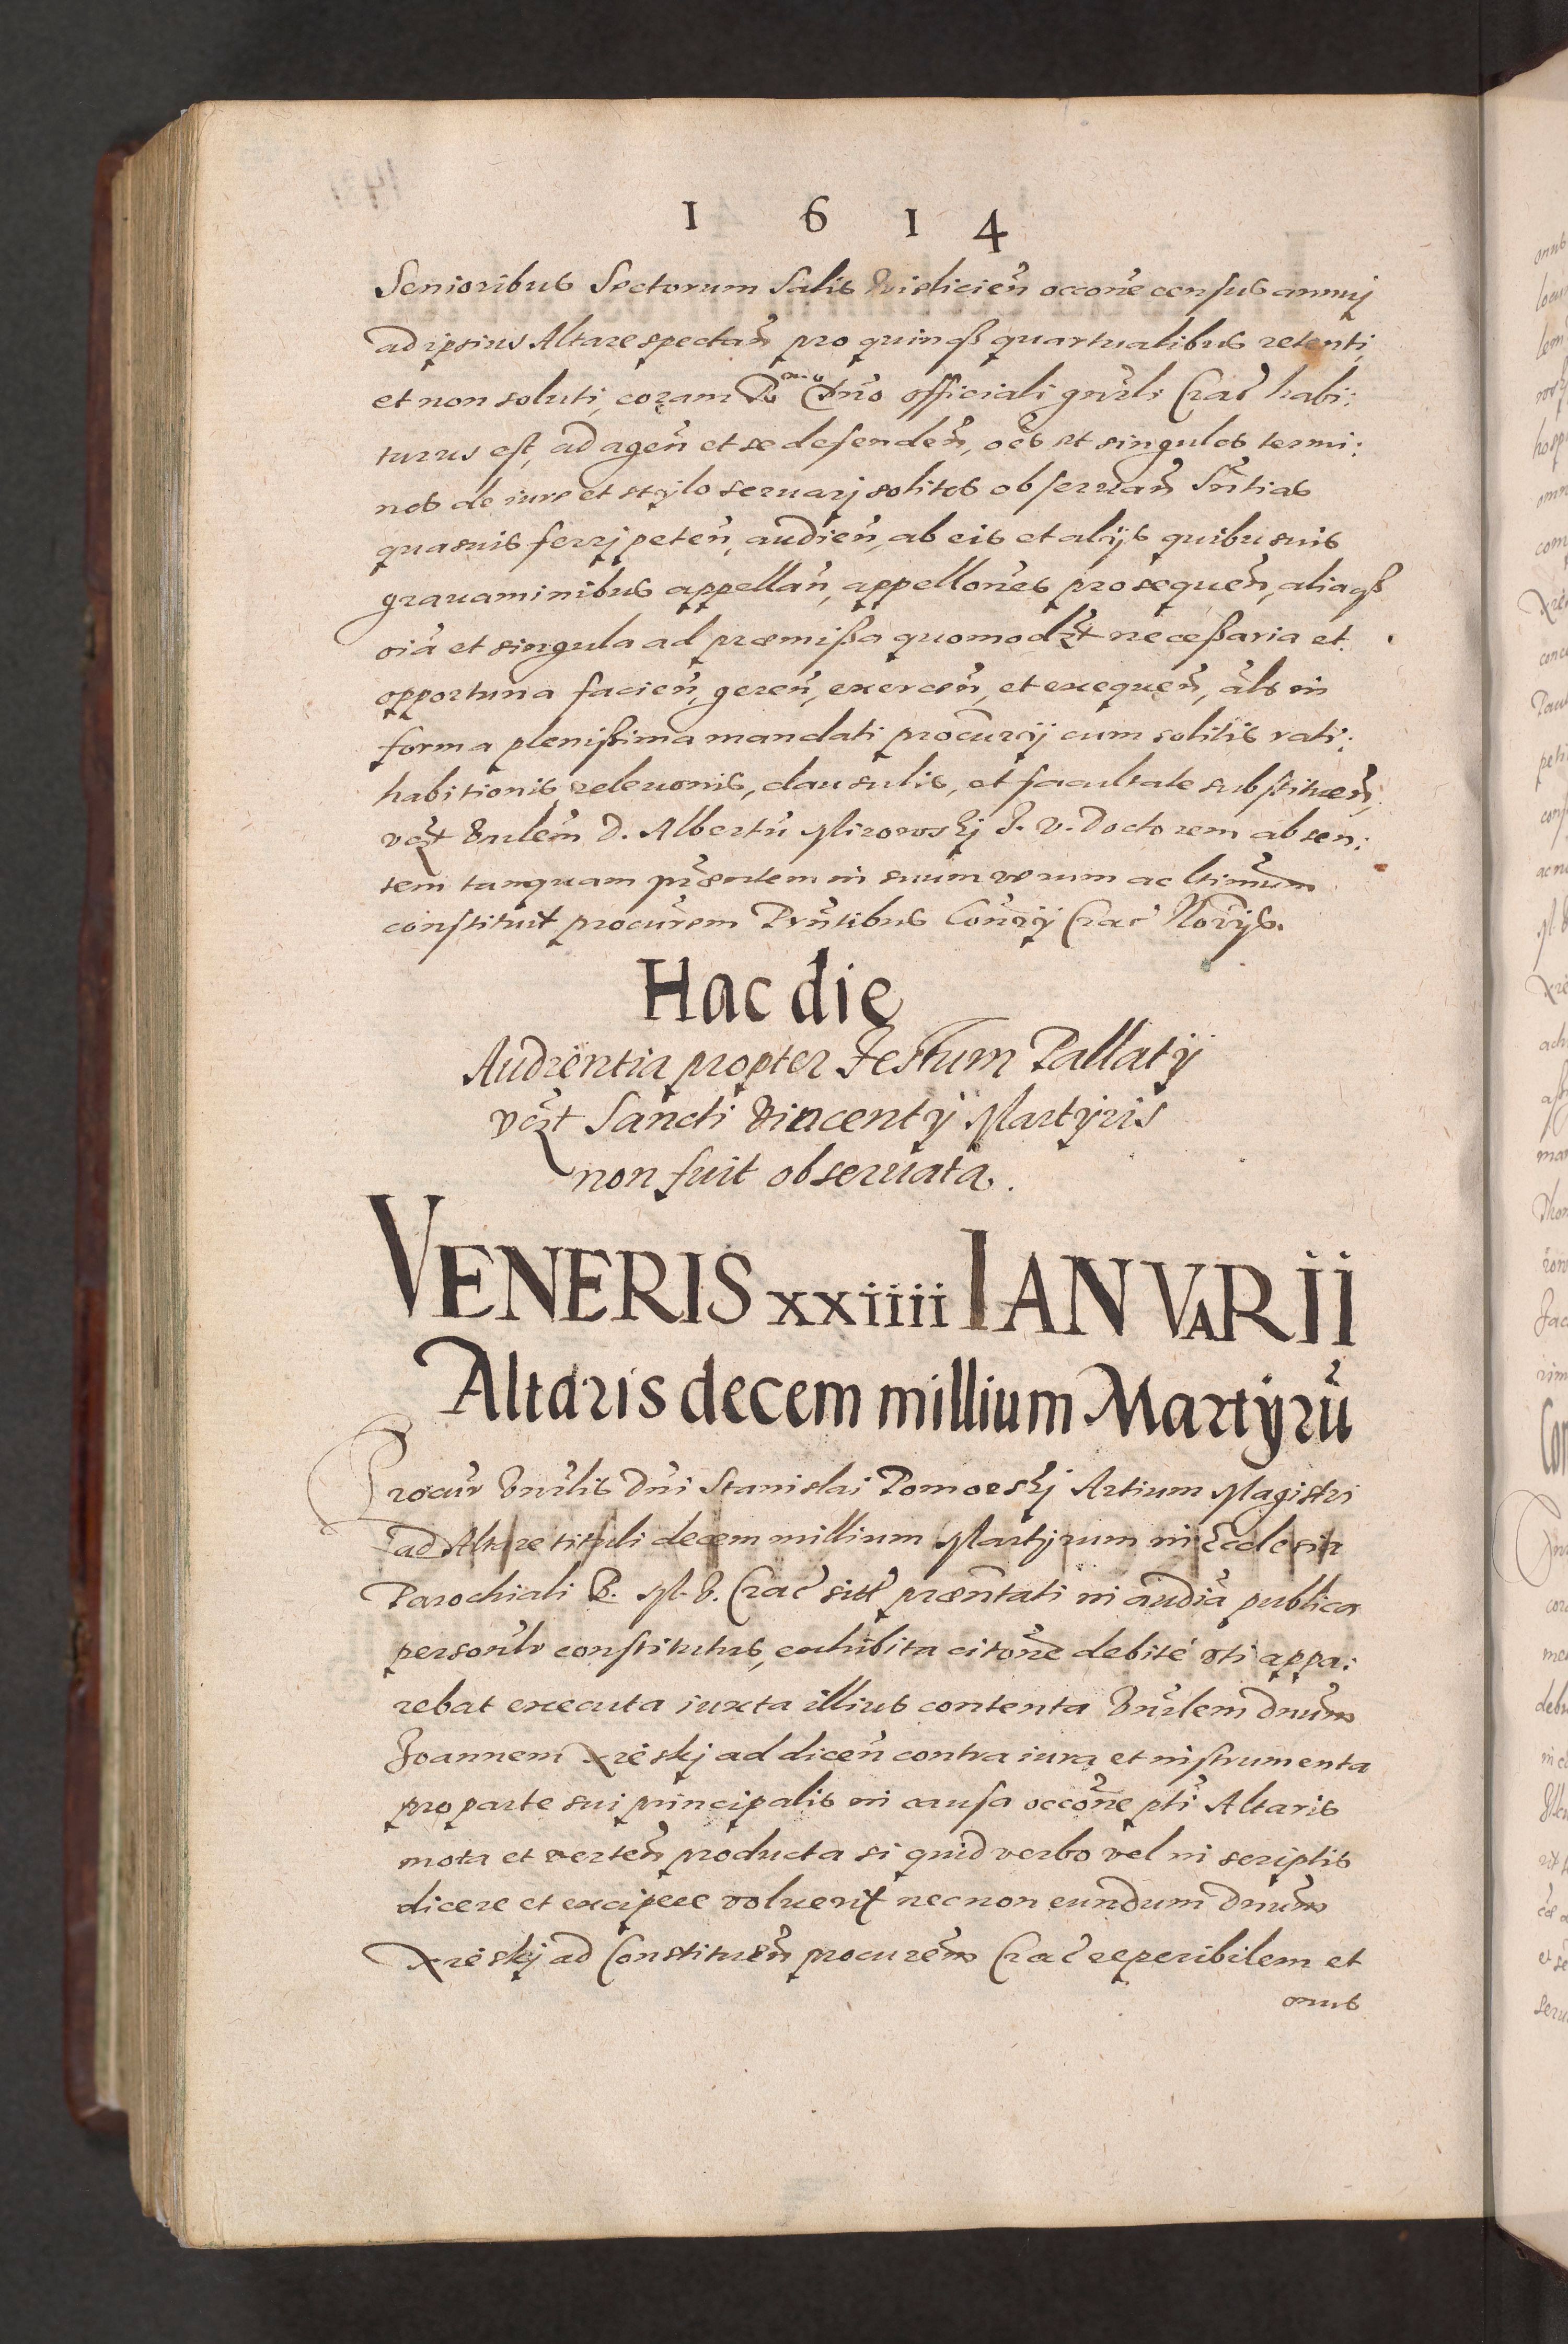 1 6 1 4
Senioribus Sectorum Salis Vislicien̄ occone census annuj
ad ipsius Altare spectan̄ pro quinqꝫ quartualibus retenti,
et non soluti, coram Rndo Dn̄o officiali gn̄rli Crac̄ habi:
turus est, ad agen̄ et se defenden̄, oēs et singulos termi:
nos de iure et stylo seruarj solitos obseruan̄ Sn̄tias
quasuis ferrj peten̄, audien̄, ab eis et alijs quibusuis
grauaminibus appellan̄, appellones prosequen̄, aliaqꝫ
oiā et singula ad præmißa quomodłt neceßaria et
opportuna facien̄, geren̄, exercen̄, et exequen̄, āls in
forma plenißima mandati procurij cum solitis rati:
habitionis, releuonis, clausulis, et facultate substituen̄,
vēꝫt Vnrlem D. Albertū Mirowskj J. V. Doctorem absen:
tem tanquam præntem in suum verum ac ltimum
constituit procurem Prn̄tibus Conrij Crac̄ Notrijs.
Hac die
Audientia propter Festum Pallatij
vēꝫt Sancti Vincentij Martyris
non fuit obseruata.
VENERIS xxiiii IANVARII
Altaris decem millium Martyrū
Procur Vnrlis Dn̄i Stanislai Pomorskj Artium Magistri
ad Altare tituli decem millium Martyrum in Ecclesia
Parochiali B. M. V. Crac̄ sitt præn̄tati in audiā publica
personlr constitutus, exhibita citone debitè vti appa:
rebat executa iuxta illius contenta Vnrlem Dnum
Joannem Xrēskj ad dicen̄ contra iura et instrumenta
pro parte sui principalis in causa occone pti Altaris
mota et verten̄ producta si quid verbo vel in scriptis
dicere et excipere voluerit necnon eundum Dnum
Xrēskj ad Constituen̄ procurem Crac̄ reperibilem et
onus